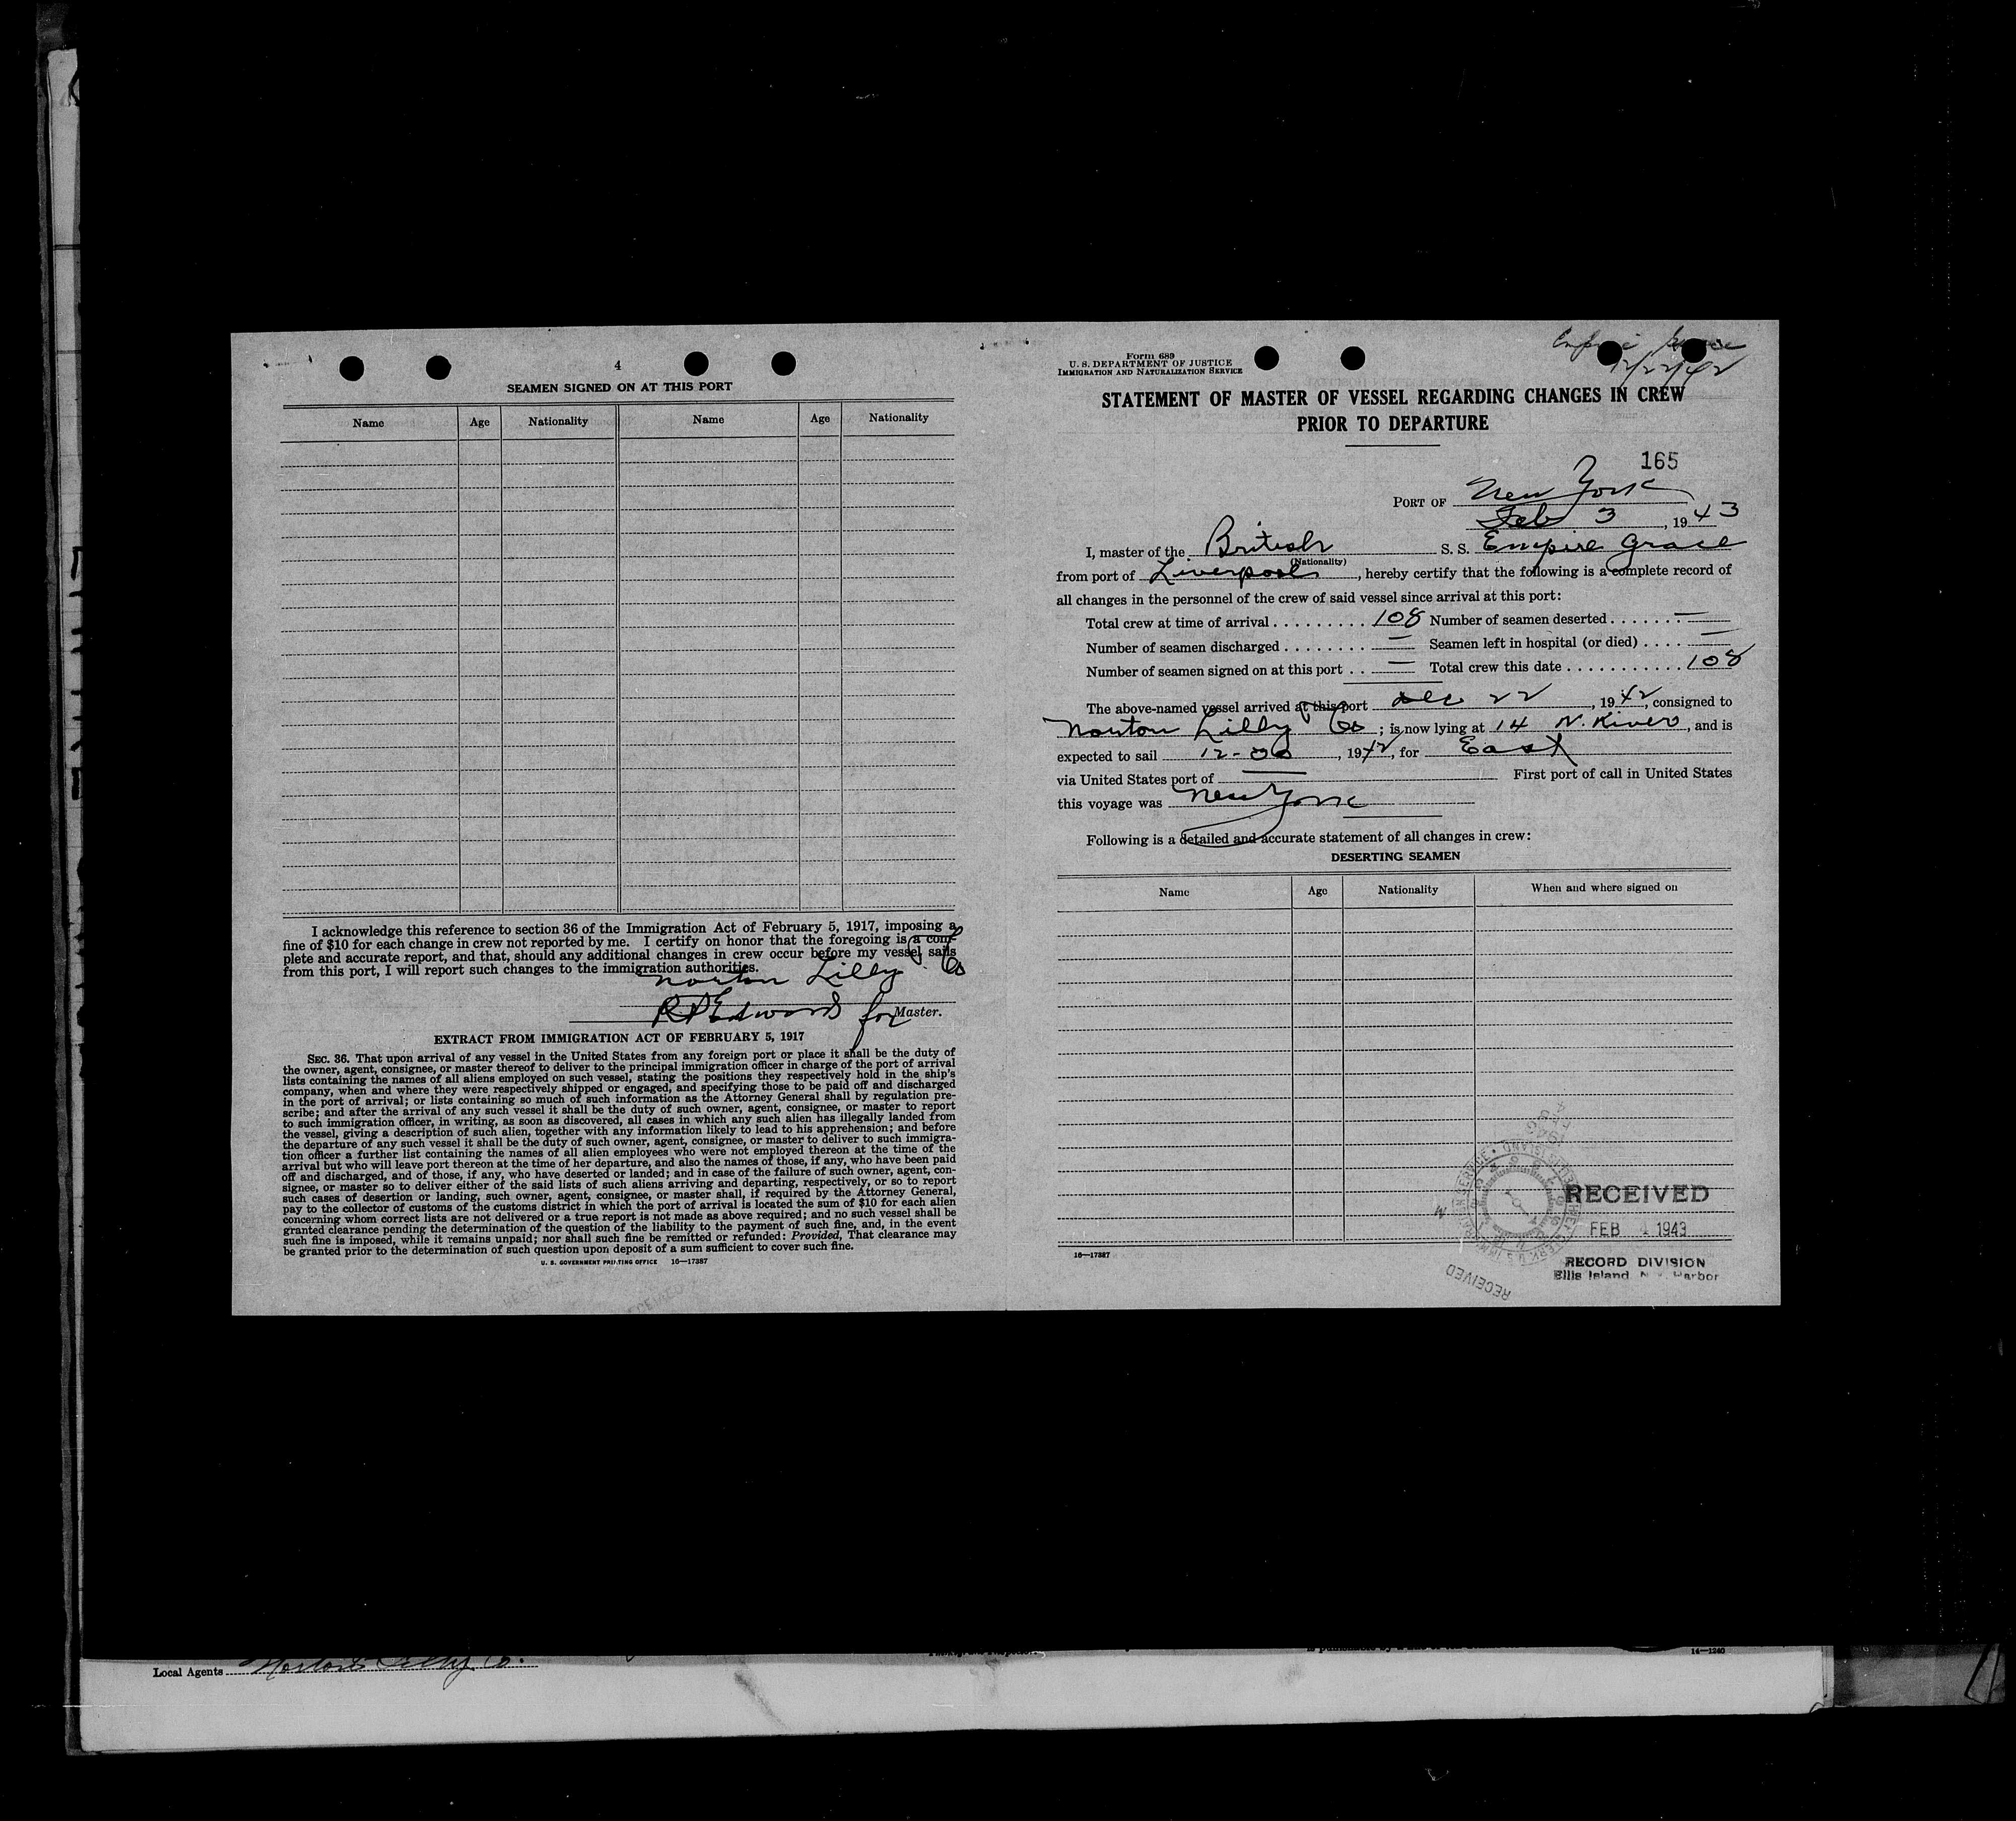 4
SEAMEN SIGNED ON AT THIS PORT
Name Age Nationality Name Age Nationality
I acknowledge this reference to section 36 of the Immigration Act of February 5, 1917, imposing a
fine of $10 for each change in crew not reported by me. I certify on honor that the foregoing is a com-
plete and accurate report, and that, should any additional changes in crew occur before my vessel sails
from this port, I will report such changes to the immigration authorities.
Norton Lilly & Co
R P Edwards for Master.
EXTRACT FROM IMMIGRATION ACT OF FEBRUARY 5, 1917
SEC. 36. That upon arrival of any vessel in the United States from any foreign port or place it shall be the duty of
the owner, agent, consignee, or master thereof to deliver to the principal immigration officer in charge of the port of arrival
lists containing the names of all aliens employed on such vessel, stating the positions they respectively hold in the ship's
company, when and where they were respectively shipped or engaged, and specifying those to be paid off and discharged
in the port of arrival; or lists containing so much of such information as the Attorney General shall by regulation pre-
scribe; and after the arrival of any such vessel it shall be the duty of such owner, agent, consignee, or master to report
to such immigration officer, in writing, as soon as discovered, all cases in which any such alien has illegally landed from
the vessel, giving a description of such alien, together with any information likely to lead to his apprehension; and before
the departure of any such vessel it shall be the duty of such owner, agent, consignee, or master to deliver to such immigra-
tion officer a further list containing the names of all alien employees who were not employed thereon at the time of the
arrival but who will leave port thereon at the time of her departure, and also the names of those, if any, who have been paid
off and discharged, and of those, if any, who have deserted or landed; and in case of the failure of such owner, agent, con-
signee, or master so to deliver either of the said lists of such aliens arriving and departing, respectively, or so to report
such cases of desertion or landing, such owner, agent, consignee, or master shall, if required by the Attorney General,
pay to the collector of customs of the customs district in which the port of arrival is located the sum of $10 for each alien
concerning whom correct lists are not delivered or a true report is not made as above required; and no such vessel shall be
granted clearance pending the determination of the question of the liability to the payment of such fine, and, in the event
such fine is imposed, while it remains unpaid; nor shall such fine be remitted or refunded: Provided, That clearance may
be granted prior to the determination of such question upon deposit of a sum sufficient to cover such fine.
U. S. GOVERNMENT PRINTING OFFICE 16—17387
Form 689
U. S. DEPARTMENT OF JUSTICE
IMMIGRATION AND NATURALIZATION SERVICE
Empire Grace
12/22/42
STATEMENT OF MASTER OF VESSEL REGARDING CHANGES IN CREW
PRIOR TO DEPARTURE
165
PORT OF New York
Feb 3, 1943
I, master of the British S. S. Empire Grace
(Nationality)
from port of Liverpool, hereby certify that the following is a complete record of
all changes in the personnel of the crew of said vessel since arrival at this port:
Total crew at time of arrival . . . . . . . . . 108 Number of seamen deserted . . . . . . . —
Number of seamen discharged . . . . . . . . — Seamen left in hospital (or died) . . . . —
Number of seamen signed on at this port . . — Total crew this date . . . . . . . . . . . 108
The above-named vessel arrived at this port Dec 22, 1942, consigned to
Norton Lilly & Co ; is now lying at 14 N. River, and is
expected to sail 12-00, 1942, for East
via United States port of — First port of call in United States
this voyage was New York
Following is a detailed and accurate statement of all changes in crew:
DESERTING SEAMEN
Name Age Nationality When and where signed on
RECEIVED
FEB 4 1943
RECORD DIVISION
Ellis Island N. Y. Harbor
RECEIVED
16—17387
14—1240
Local Agents Norton Lilly Co.